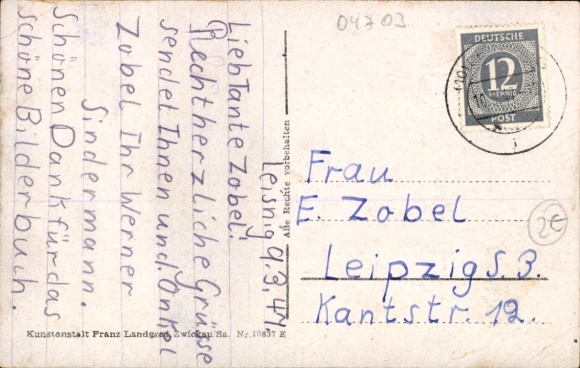 04703
DEUTSCHE
12
PFENNIG
POST
Leisnig 9.3.47.
Lieb Tante Zobel!
Recht herzliche Grüsse
sendet Ihnen und. Onkel
Zobel Ihr Werner
Sindermann.
Schönen Dank für das
schöne Bilderbuch.
Alle Rechte vorbehalten
Frau
E. Zobel
Leipzig S. 3.
Kantstr. 12.
2€
Kunstanstalt Franz Landgraf, Zwickau/Sa. Nr. 10837 E